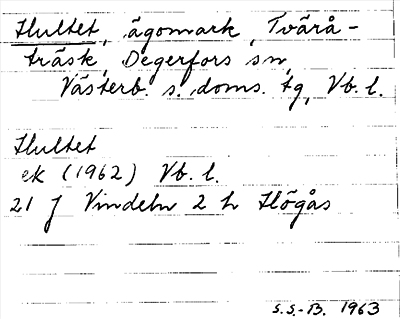 Hultet, ägomark, Tvärå-
träsk, Degerfors sn,
Västerb. s. doms. tg, Vb. l.
Hultet
ek (1962) Vb. l.
21 J Vindeln 2 h Högås
S.S.-B. 1963